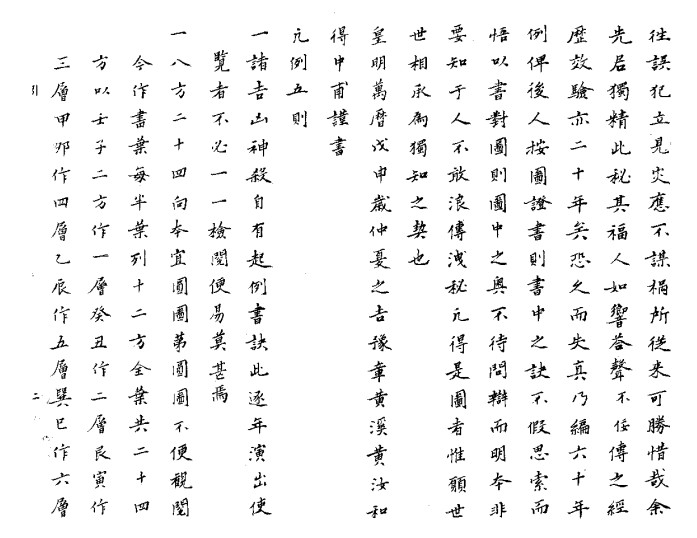 徃誤犯立見災應不謀禍所從来可勝惜哉余
先君獨精此秘其福人如響荅聲不佞傳之經
歷效驗亦二十年矣恐久而失真乃編六十年
例俾後人按圖證書則書中之訣不假思索而
悟以書對圖則圖中之奥不待問辯而明本非
要知于人不敢浪傳洩秘凢得是圖者惟願世
世相承為獨知之契也
皇明萬曆戊申歲仲夏之吉豫章黄溪黄汝和
得中甫謹書
凢例五則
一諸吉凶神殺自有起例書訣此逐年演出使
覽者不必一一檢閱便易莫甚焉
一八方二十四向本宜圓圖第圓圖不便觀閱
今作書葉每半葉列十二方全葉共二十四
方以壬子二方作一層癸丑作二層艮寅作
三層甲夘作四層乙辰作五層巽巳作六層
引
二